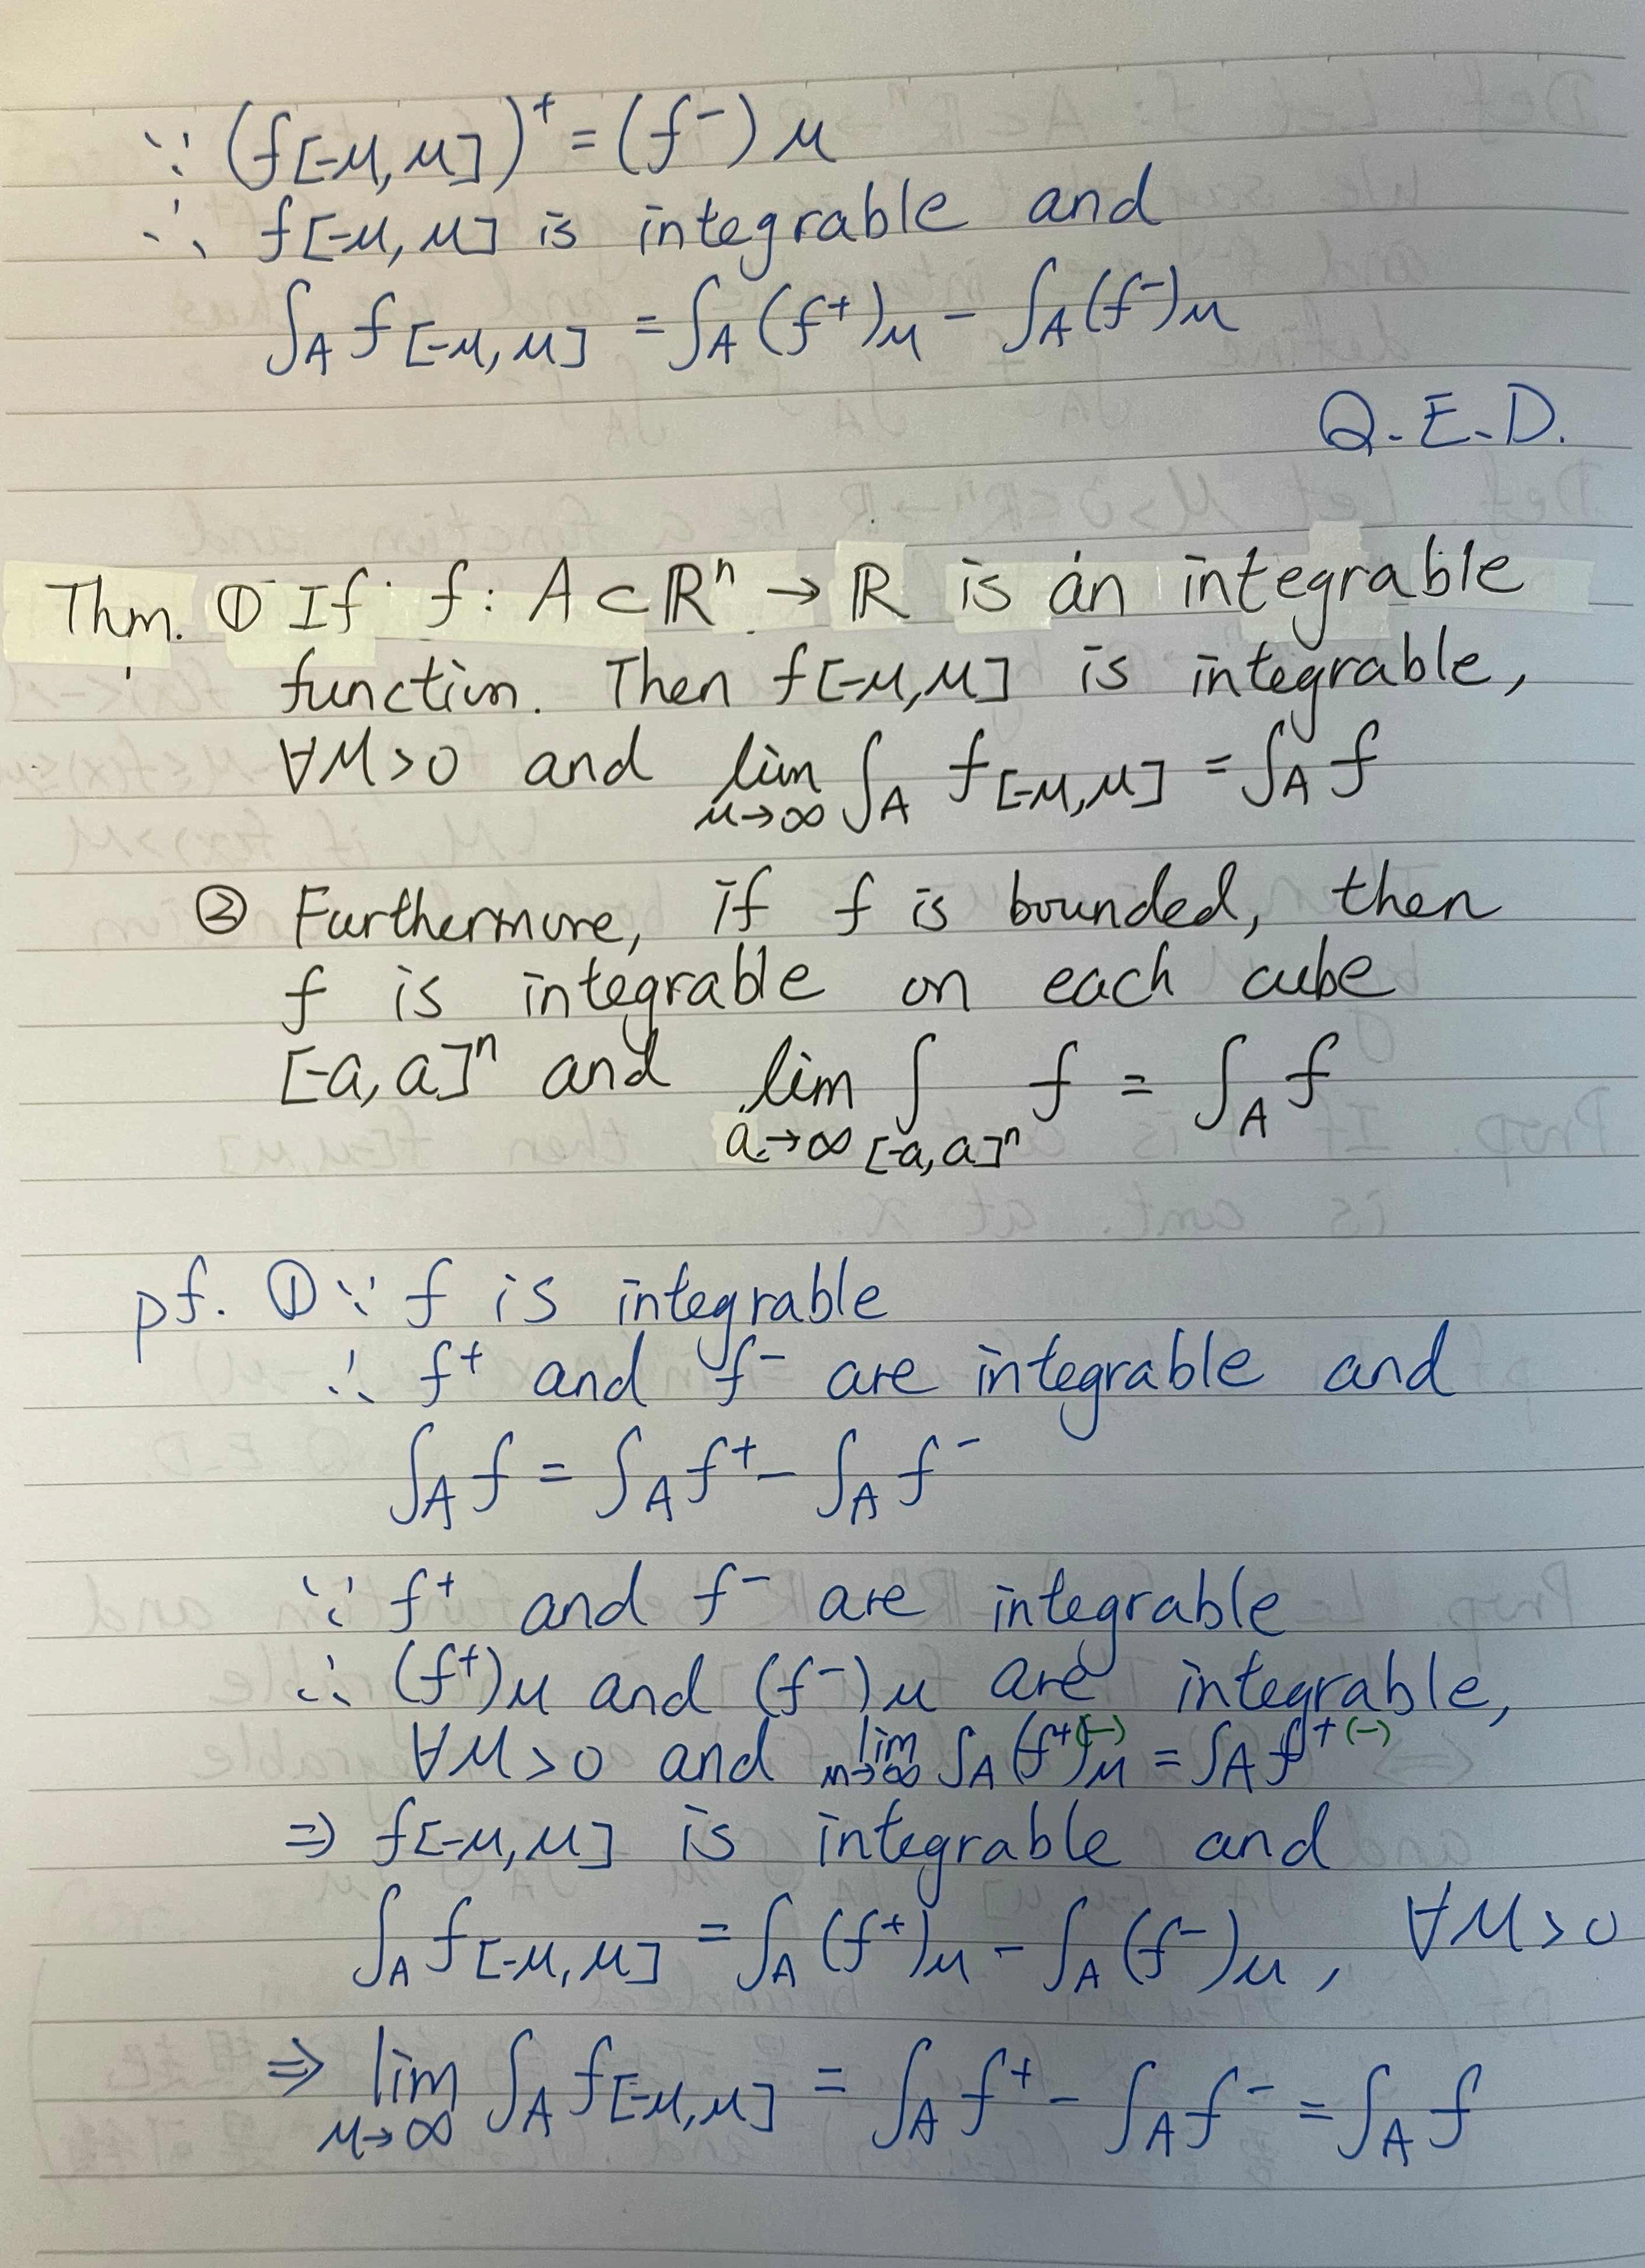 ∵ (f[-M,M])⁺ = (f⁻)M
∴ f[-M,M] is integrable and
∫A f[-M,M] = ∫A (f⁺)M - ∫A (f⁻)M
Q.E.D.
Thm. ① If f: A ⊂ ℝⁿ → ℝ is an integrable
function. Then f[-M,M] is integrable,
∀M>0 and lim M→∞ ∫A f[-M,M] = ∫A f
② Furthermore, if f is bounded, then
f is integrable on each cube
[-a,a]ⁿ and lim a→∞ ∫[-a,a]ⁿ f = ∫A f
pf. ① ∵ f is integrable
∴ f⁺ and f⁻ are integrable and
∫A f = ∫A f⁺ - ∫A f⁻
∵ f⁺ and f⁻ are integrable
∴ (f⁺)M and (f⁻)M are integrable,
∀M>0 and lim M→∞ ∫A (f⁺⁽⁻⁾)M = ∫A f⁺⁽⁻⁾
⇒ f[-M,M] is integrable and
∫A f[-M,M] = ∫A (f⁺)M - ∫A (f⁻)M, ∀M>0
⇒ lim M→∞ ∫A f[-M,M] = ∫A f⁺ - ∫A f⁻ = ∫A f